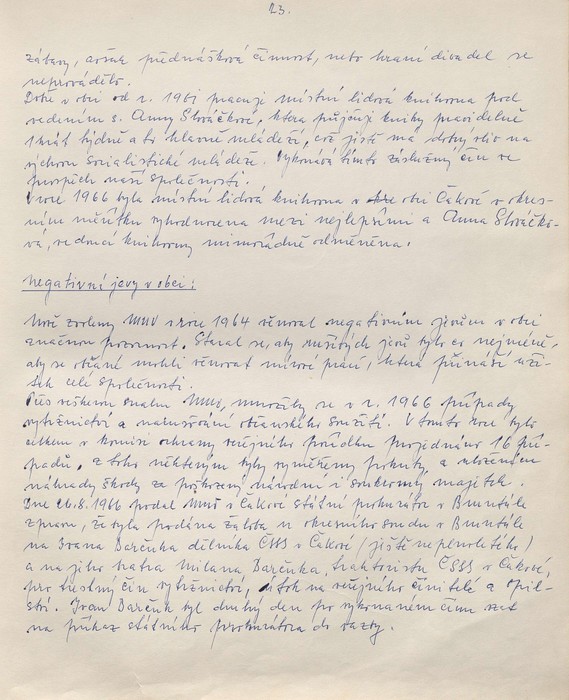 23.
zábavy, avšak přednášková činnost, nebo hraní divadel se
neprovádělo.
Dobře v obci od r. 1961 pracuje místní lidová knihovna pod
vedením s. Anny Slováčkové, která půjčuje knihy pravidelně
1krát týdně a to hlavně mládeži, což jistě má dobrý vliv na
výchovu socialistické mládeže. Vykonává tímto záslužný čin ve
prospěch naší společnosti.
V roce 1966 byla místní lidová knihovna v obci Čakové v okres-
ním měřítku vyhodnocena mezi nejlepšími a Anna Slováčko-
vá, vedoucí knihovny mimořádně odměněna.
Negativní jevy v obci:
Nově zvolený MNV v roce 1964 věnoval negativním jevům v obci
značnou pozornost. Staral se, aby rušivých jevů bylo co nejméně,
aby se občané mohli věnovat mírové práci, která přináší uži-
tek celé společnosti.
Přes veškerou snahu MNV, množily se v r. 1966 případy
výtržnictví a narušování občanského soužití. V tomto roce bylo
celkem v komisi ochrany veřejného pořádku projednáno 16 pří-
padů, z toho některým byly vyměřeny pokuty, a uložením
náhrady škody za poškozený národní i soukromý majetek.
Dne 26.8.1966 podal MNV v Čakové státní prokurátor v Bruntále
zprávu, že byla podána žaloba u okresního soudu v Bruntále
na Ivana Barčuka dělníka ČSSS v Čakové (ještě neplnoletého)
a na jeho bratra Milana Barčuka, traktoristu ČSSS v Čakové,
pro trestný čin výtržnictví, útok na veřejného činitele a opil-
ství. Ivan Barčuk byl druhý den po vykonaném činu vzat
na příkaz státního prokurátora do vazby.